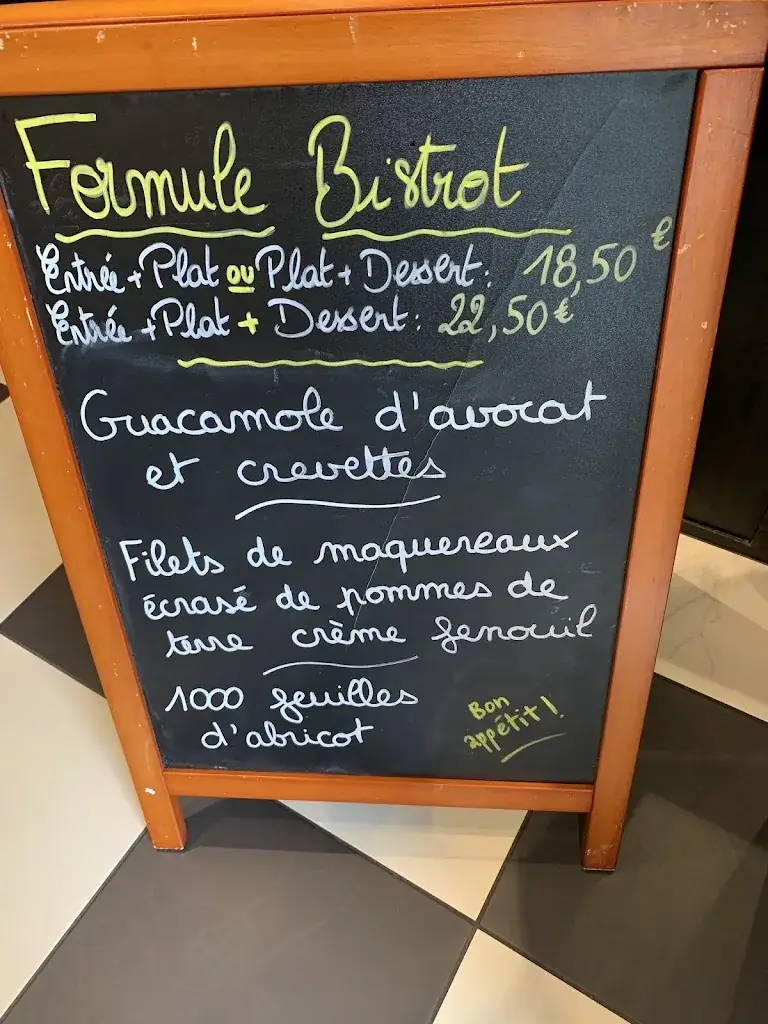 Formule Bistrot
Entrée + Plat ou Plat + Dessert : 18,50 €
Entrée + Plat + Dessert : 22,50 €
Guacamole d'avocat
et crevettes
Filets de maquereaux
écrasé de pommes de
terre crème fenouil
1000 feuilles
d'abricot
Bon
appétit !